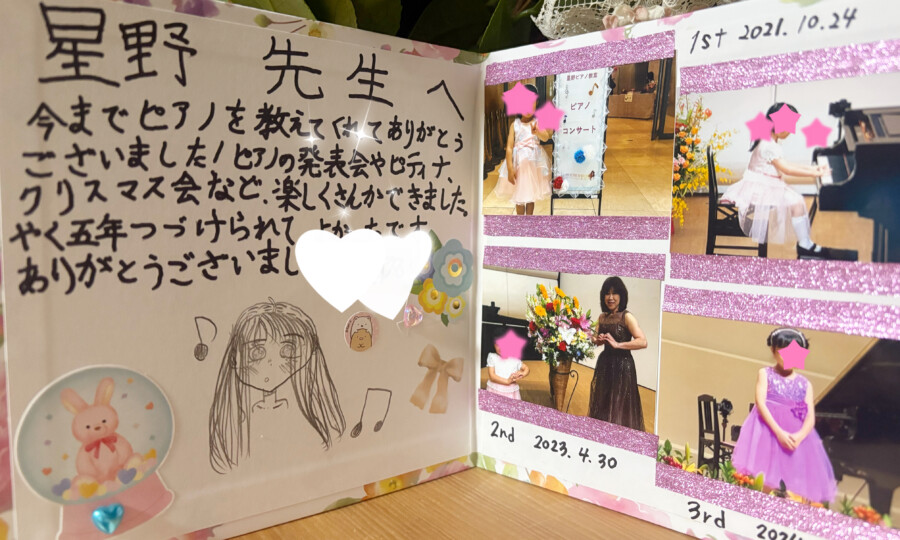 星野 先生へ
今までピアノを教えてくれてありがとう
ございました!ピアノの発表会やピティナ、
クリスマス会など、楽しくさんかができました。
やく五年つづけられて よかったです
ありがとうございまし
星野ピアノ教室
ピアノ
コンサート
1st 2021.10.24
2nd 2023.4.30
3rd 2024